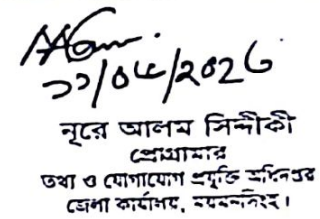 ১১/০৫/২০২৬
নূরে আলম সিদ্দীকী
প্রোগ্রামার
তথ্য ও যোগাযোগ প্রযুক্তি অধিদপ্তর
জেলা কার্যালয়, ময়মনসিংহ।